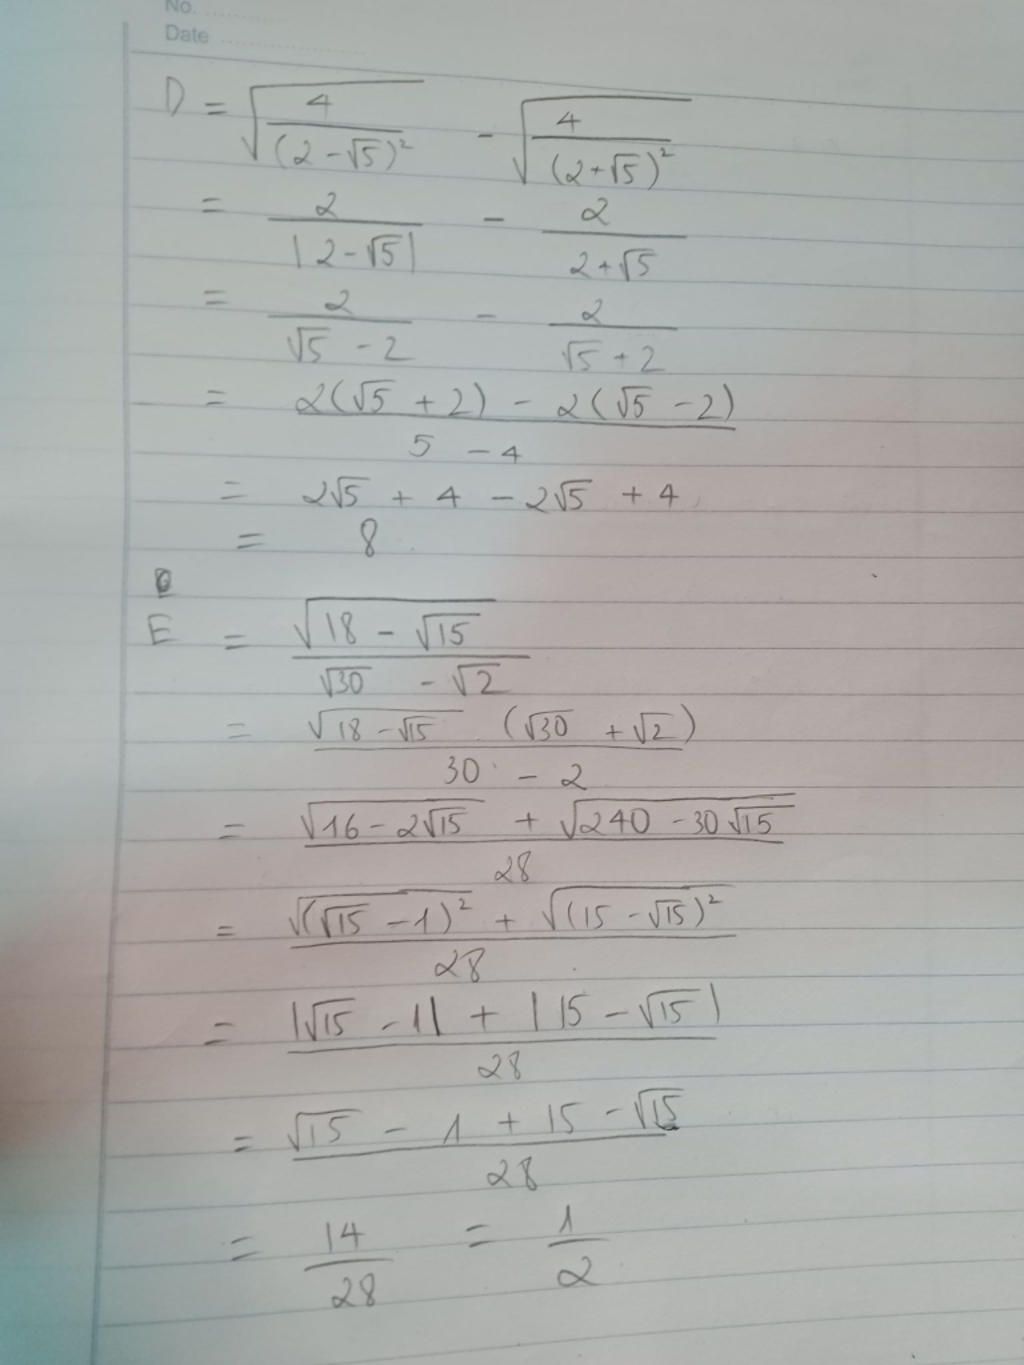 No. ..........
Date ..................
D = √(4/(2-√5)²) - √(4/(2+√5)²)
= 2/|2-√5| - 2/(2+√5)
= 2/(√5 - 2) - 2/(√5 + 2)
= (2(√5 + 2) - 2(√5 - 2))/(5 - 4)
= 2√5 + 4 - 2√5 + 4
= 8
E = √(18 - √15)/(√30 - √2)
= (√(18 - √15) . (√30 + √2))/(30 - 2)
= (√(16 - 2√15) + √(240 - 30√15))/28
= (√((√15 - 1)²) + √((15 - √15)²))/28
= (|√15 - 1| + |15 - √15|)/28
= (√15 - 1 + 15 - √15)/28
= 14/28 = 1/2